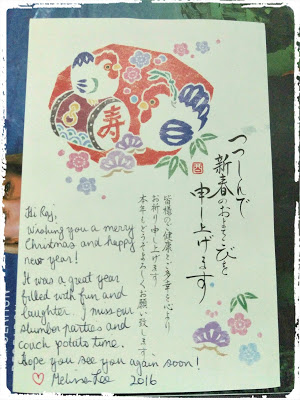 寿
つつしんで
新春のおよろこびを
申し上げます
皆様の健康と多幸を心より
お祈り申し上げます
本年もどうぞよろしくお願い致します
Hi Raj,
Wishing you a merry
Christmas and happy
new year!
It was a great year
filled with fun and
laughter. I miss our
slumber parties and
couch potato time.
Hope you see you again soon!
Melissa Lee 2016